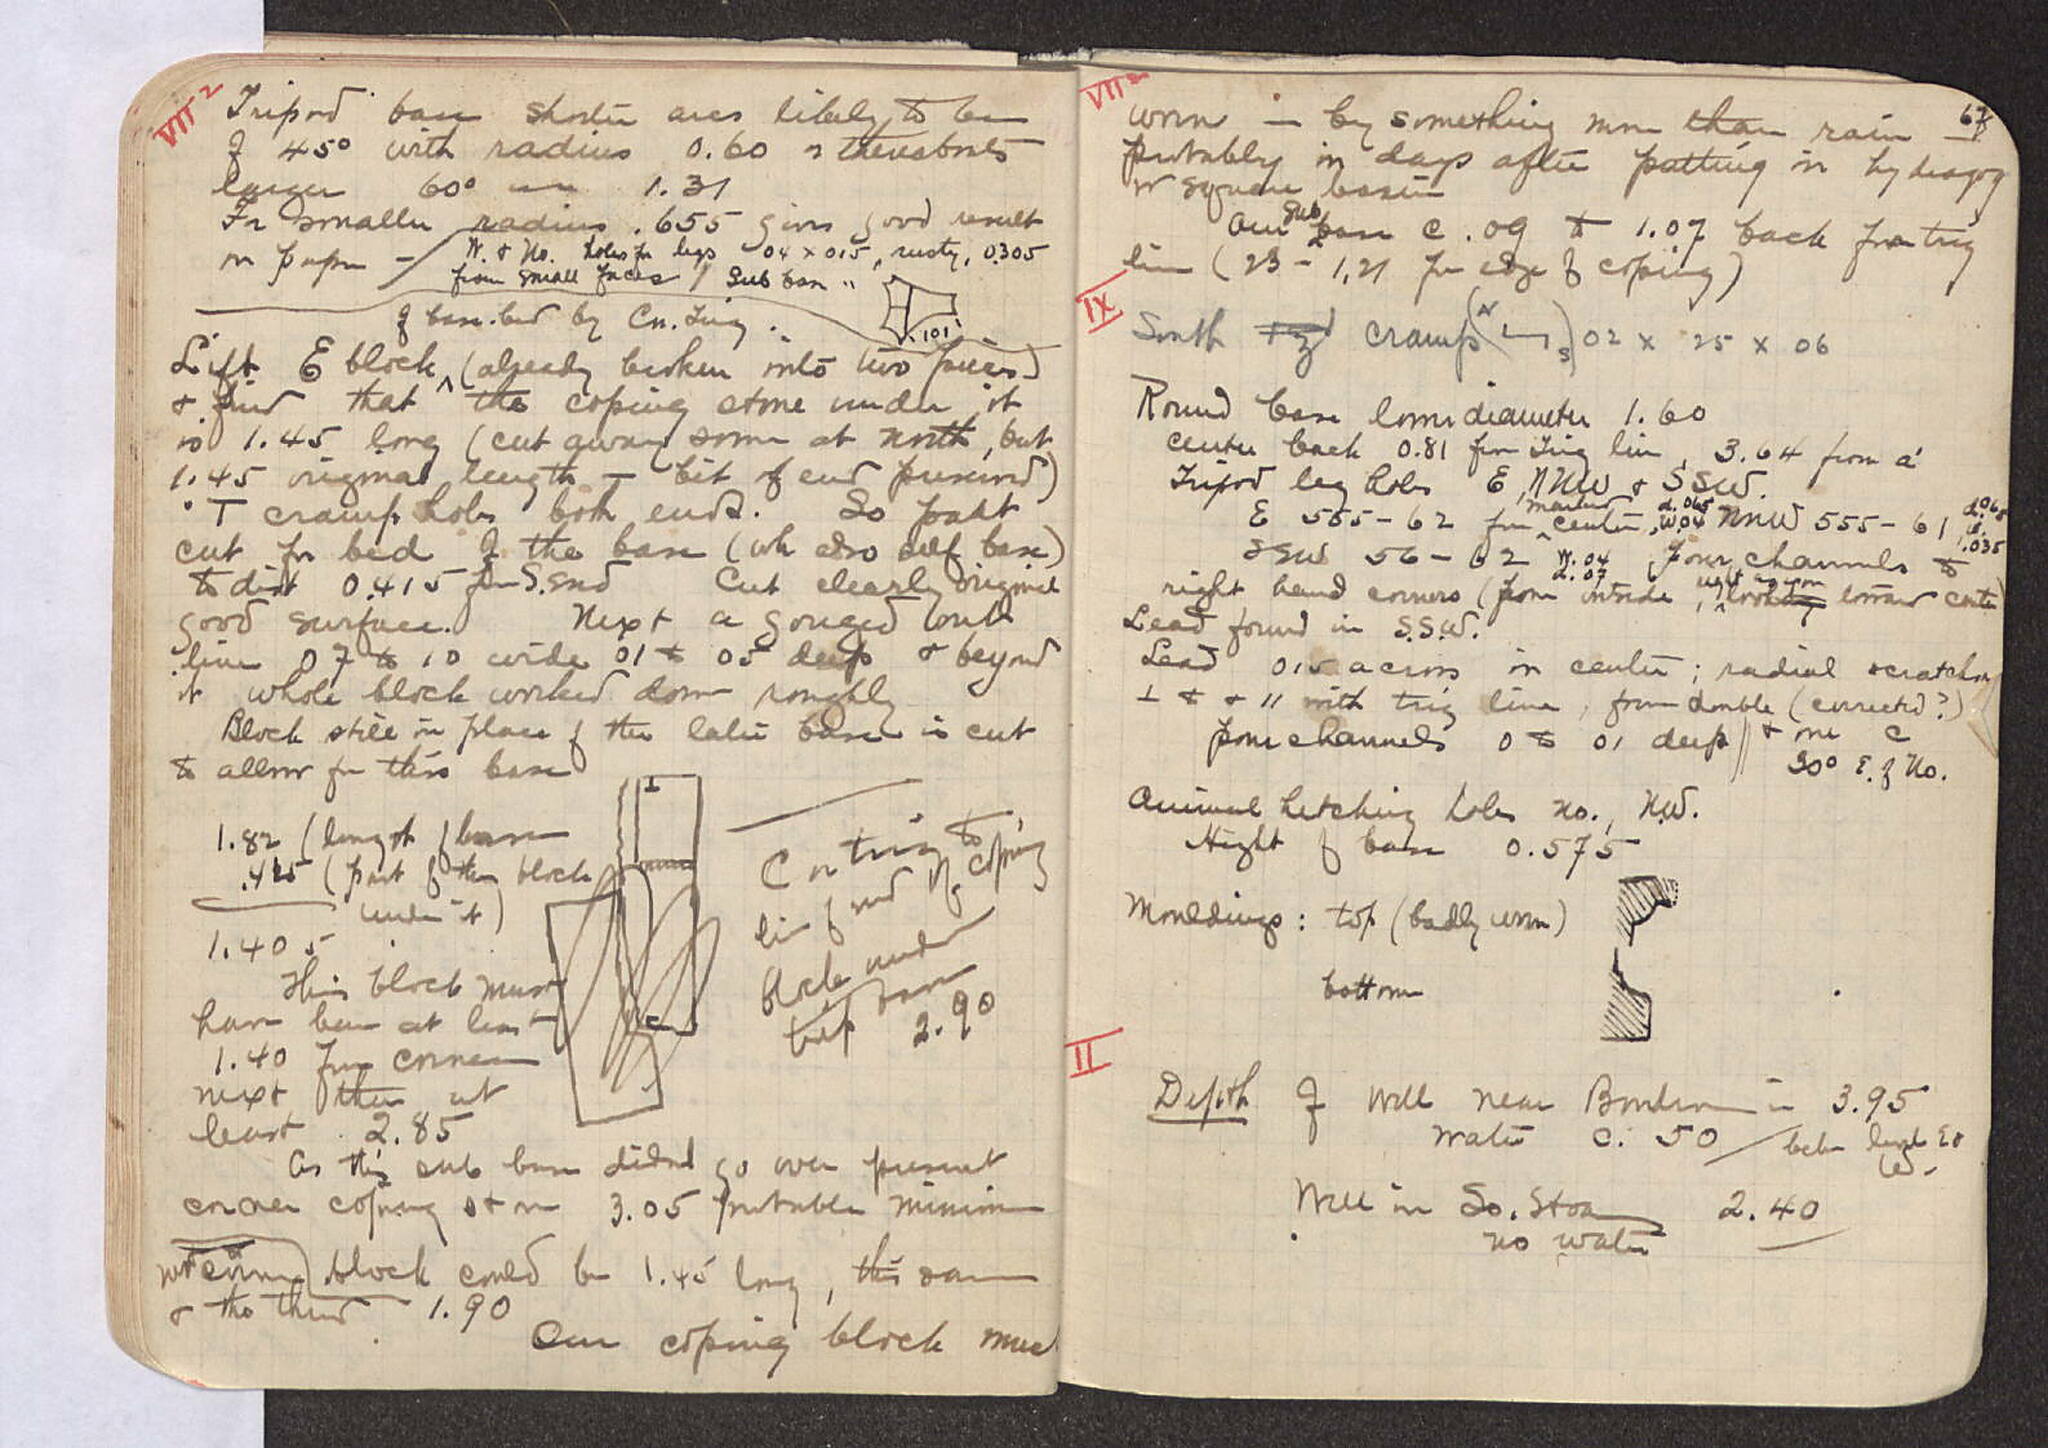 VII 2
Tripod base shorter arcs likely to be
of 45° with radius 0.60
larger 60° 1.31
For smaller radius .655 gives good result
on paper - W. & No. holes for legs 04 x 015, rusty, 0.305
from small faces / Sub base "
101
of base bed by Cn. Trig.
Lift E block (already broken into two pieces)
& find that the coping stone under it
is 1.45 long (cut away some at north, but
1.45 original length - bit of end preserved)
T cramp holes both ends. So part
cut for bed of the base (wh also self base)
to dist 0.415 fr S. end Cut clearly original
good surface. Next a gouged out
line 07 to 10 wide 01 to 05 deep & beyond
it whole block worked down roughly
Block still in place of the later base is cut
to allow for this base
1.82 (length of base
.415 (part of the block
under it)
1.405
This block must
have been at least
1.40 from corner
next then at
least 2.85
Cn trig to
line of end of coping
block under
trip base
2.90
As this sub base didn't go over present
corner coping stone 3.05 probable minimum
block could be 1.45 long, this same
& the third 1.90
Our coping block must
VII 2
67
worn in by something more than rain
probably in days after putting in
or square basin
Our sub base c .09 to 1.07 back from trig
line (23 - 1.21 for edge of coping)
IX
South cramp (N S) 02 x 25 x 06
Round base lower diameter 1.60
center back 0.81 from Trig line, 3.64 from a'
Tripod leg holes E, NNW & SSW.
E 555-62 from marked center, d.065 W04 NNW 555-61 d.065 w. .035
SSW 56-62 W.04 d.07 four channels to
right hand corners (from outside, right as you look toward center)
Lead found in S.S.W.
Lead 015 across in center; radial scratches
⊥ to & // with trig line, from double (corrected?)
pour channels 0 to 01 deep // & one c
30° E. of No.
Animal hitching holes no., N.W.
Hight of base 0.575
Mouldings: top (badly worn)
bottom
II
Depth of Well near 3.95
Water c. 50 / below level
Well in So. Stoa 2.40
no water